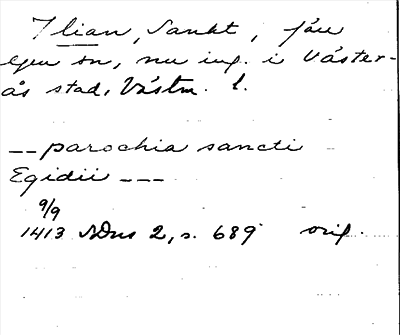 Ilian, Sankt, f.d.
egen sn, nu ing. i Väster-
ås stad, Västm. l.
-- parochia sancti
Egidii ---
9/9
1413 SDns 2, s. 689 orig.